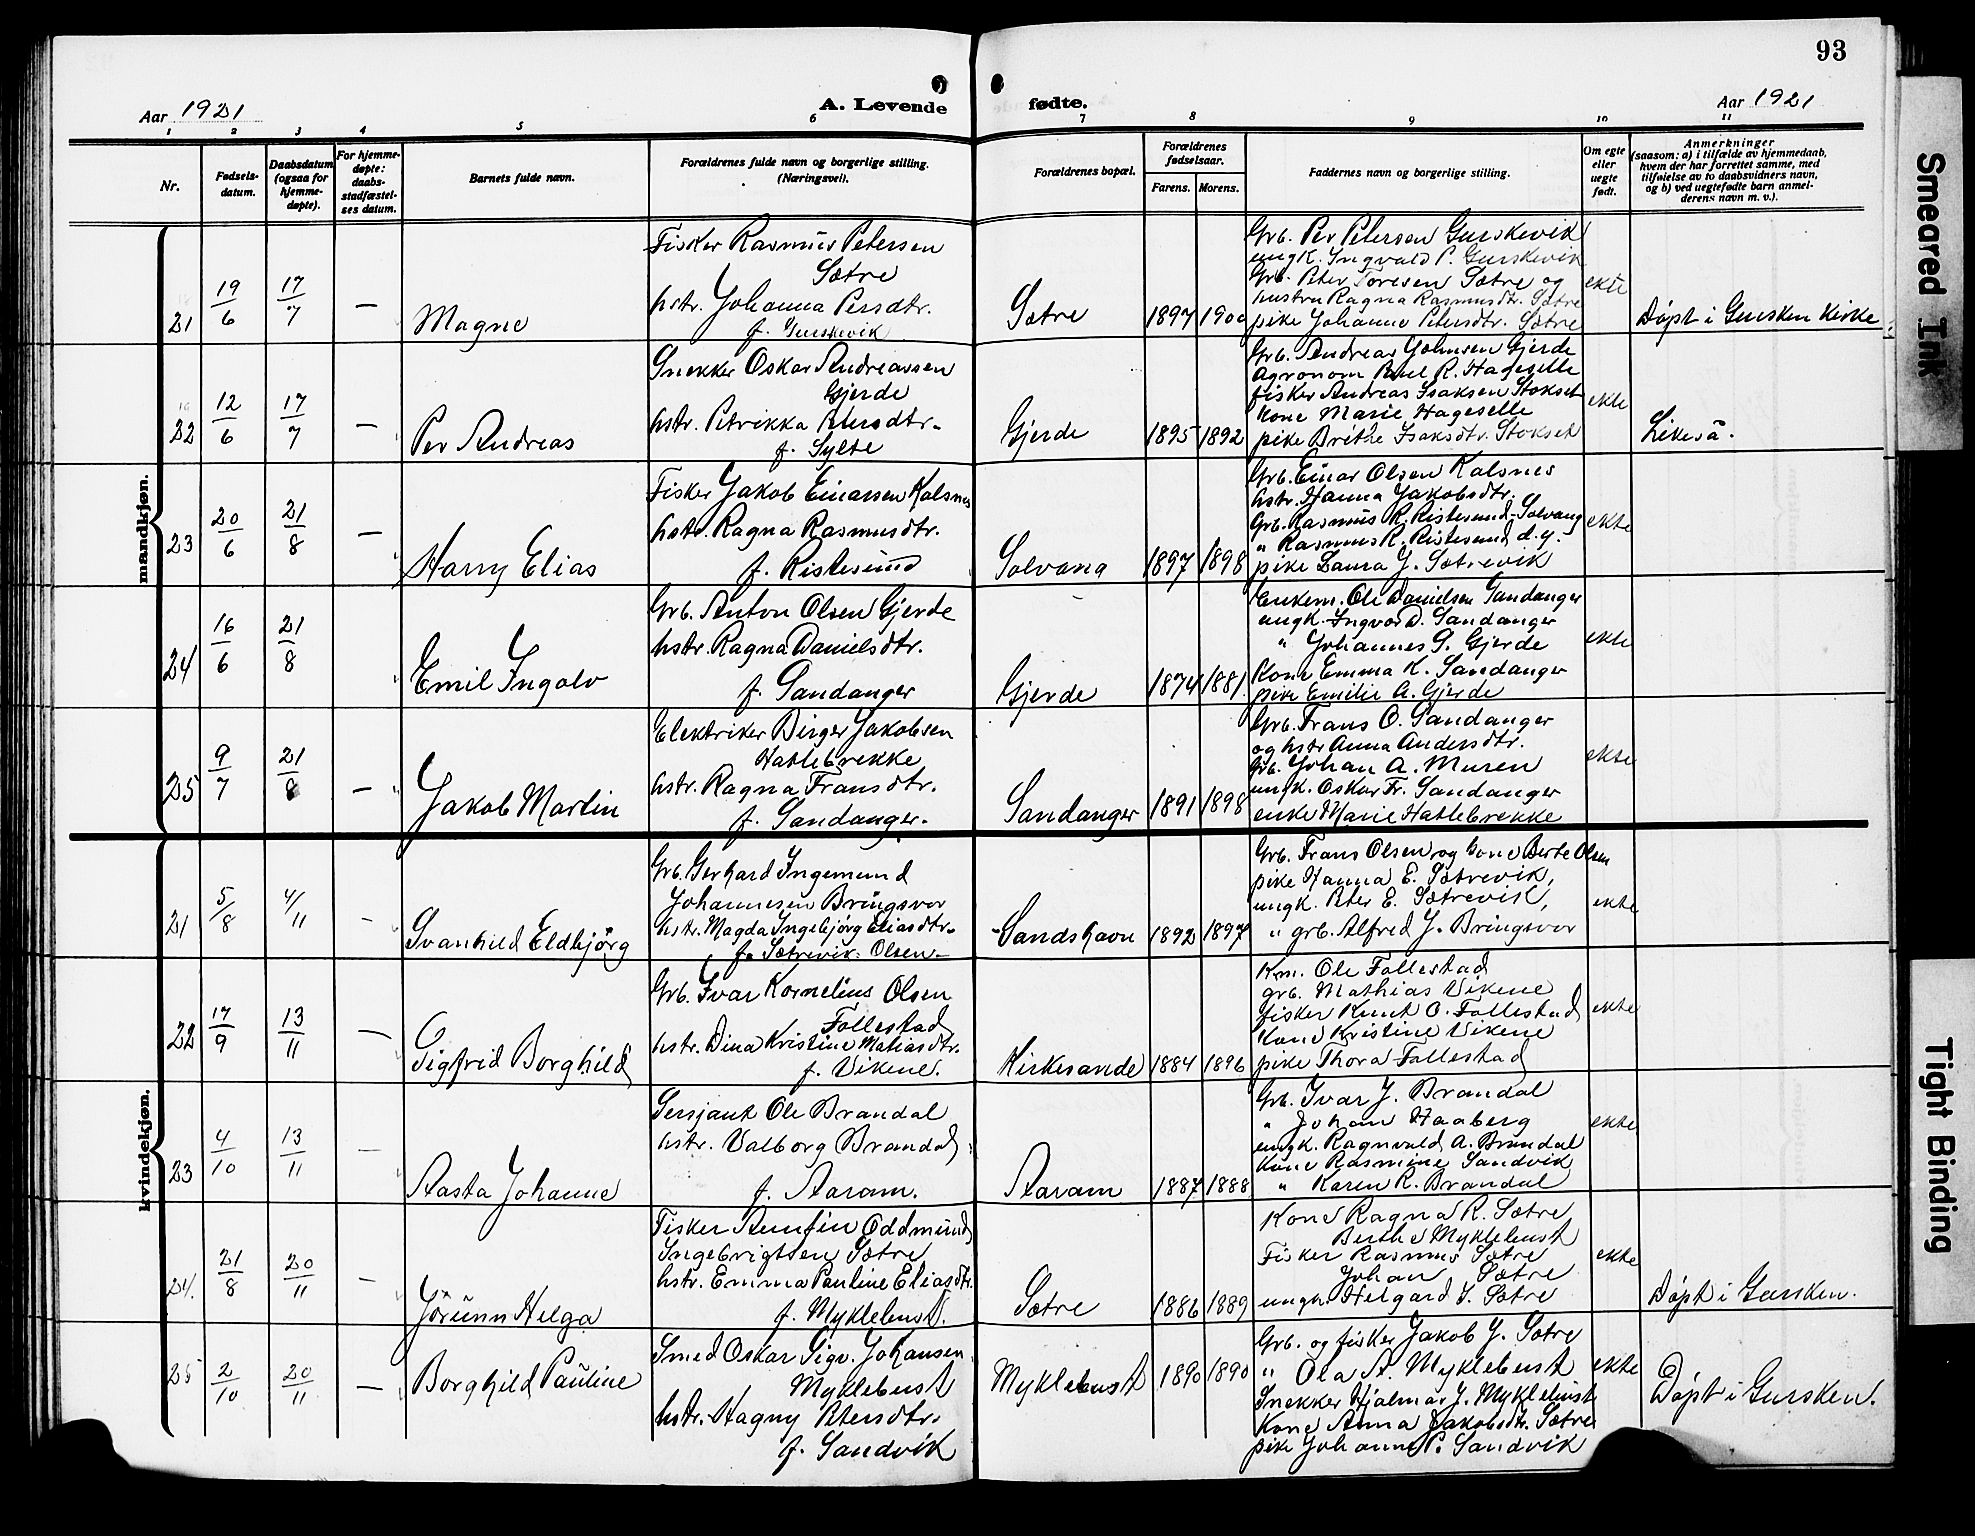 93
Aar 1921
A. Levende
fødte.
Aar 1921
1 2 3 4 5 6 7 8 9 10 11
Nr.
Fødsels-
datum.
Daabsdatum
(ogsaa for
hjemme-
døpte).
For hjemme-
døpte:
daabs-
stadfæstel-
ses datum.
Barnets fulde navn.
Forældrenes fulde navn og borgerlige stilling.
(Næringsvei).
Forældrenes bopæl.
Forældrenes
fødselsaar.
Farens. Morens.
Faddernes navn og borgerlige stilling.
Om egte
eller
uegte
født.
Anmerkninger
(saasom: a) i tilfælde av hjemmedaab,
hvem der har forrettet samme, med
tilføielse av to daabsvidners navn,
og b) ved uegtefødte barn anmel-
derens navn m. v.).
mandkjøn.
21
19/6
17/7
—
Magne
Fisker Rasmus Petersen
Sætre
hstr. Johanna Persdtr.
f. Gurskevik
Sætre
1897 1900
Grb. Per Petersen Gurskevik
ungk. Ingvald P. Gurskevik
Grb. Peter Toresen Sætre og
hustru Ragna Rasmusdtr. Sætre
pike Johanne Petersdtr. Sætre
ekte
Døpt i Gursken Kirke
22
12/6
17/7
—
Per Andreas
Snekker Oskar Andreassen
Gjerde
hstr. Petrikka Petersdtr.
f. Sylte
Gjerde
1895 1892
Grb. Andreas Johnsen Gjerde
Agronom Paul R. Hageselle
fisker Andreas Isaksen Stokset
Kone Marie Hageselle
pike Brithe Isaksdtr. Stokset
ekte
Likeså.
23
20/6
21/8
—
Harry Elias
Fisker Jakob Einarsen Kalsnes
hstr. Ragna Rasmusdtr.
f. Ristesund
Solvang
1897 1898
Grb. Einar Olsen Kalsnes
hstr. Hanna Jakobsdtr.
Grb. Rasmus R. Ristesund-Solvang
" Rasmus R. Ristesund d.y.
pike Laura J. Sætrevik
ekte
24
16/6
21/8
Emil Ingolv
Grb. Anton Olsen Gjerde
hstr. Ragna Danielsdtr.
f. Sandanger
Gjerde
1874 1881
Enkem. Ole Danielsen Sandanger
ungk. Ingvar D. Sandanger
" Johannes S. Gjerde
Kone Emma K. Sandanger
pike Emilie A. Gjerde
ekte
25
9/7
21/8
—
Jakob Martin
Elektriker Birger Jakobsen
Hatlebrekke
hstr. Ragna Fransdtr.
f. Sandanger.
Sandanger
1891 1898
Grb. Frans O. Sandanger
og hstr Anna Andersdtr.
Grb. Johan A. Muren
ungk. Oskar Fr. Sandanger
enke Marie Hatlebrekke
ekte
kvindekjøn.
21
5/8
4/11
-
Svanhild Eldbjørg
Grb. Gerhard Ingemund
Johannesen Bringsvor
hstr. Magda Ingebjørg Eliasdtr.
f. Sætrevik. Olsen
Sandshavn
1892 1897
Grb. Frans Olsen og kone Berte Olsen
pike Hanna E. Sætrevik,
ungk. Peter E. Sætrevik,
" grb. Alfred J. Bringsvor
ekte
22
17/9
13/11
—
Sigfrid Borghild
Grb. Ivar Kornelius Olsen
Follestad
hstr. Dina Kristine Matiasdtr.
f. Vikene.
Kirkesande
1884 1896
Km. Ole Follestad
grb. Mathias Vikene
fisker Knut O. Follestad
Kone Kristine Vikene
pike Thora Follestad
ekte
23
4/10
13/11
—
Aasta Johanne
Sersjant Ole Brandal
hstr. Valborg Brandal
f. Aaram.
Aaram
1887 1888
Grb. Ivar J. Brandal
" Johan Haaberg
ungk. Ragnvald A. Brandal
Kone Rasmine Sandvik
" Karen R. Brandal
ekte
24.
21/8
20/11
—
Jørunn Helga
Fisker Arnfin Oddmund
Ingebrigtsen Sætre
hstr. Emma Pauline Eliasdtr.
f. Myklebust.
Sætre
1886 1889
Kone Ragna R. Sætre
Berthe Myklebust
Fisker Rasmus Sætre
Johan Sætre
ungk. Helgard I. Sætre
ekte
Døpt i Gursken.
25
2/10
20/11
—
Borghild Pauline
Smed Oskar Sigv. Johansen
Myklebust
hstr. Hagny Petersdtr.
f. Sandvik
Myklebust
1890 1890
Grb. og fisker Jakob J. Sætre
" Ola A. Myklebust
Snekker Hjalmar J. Myklebust
Kone Anna Jakobsdtr. Sætre
pike Johanne P. Sandvik
ekte
Døpt i Gursken.
Smeared Ink
Tight Binding